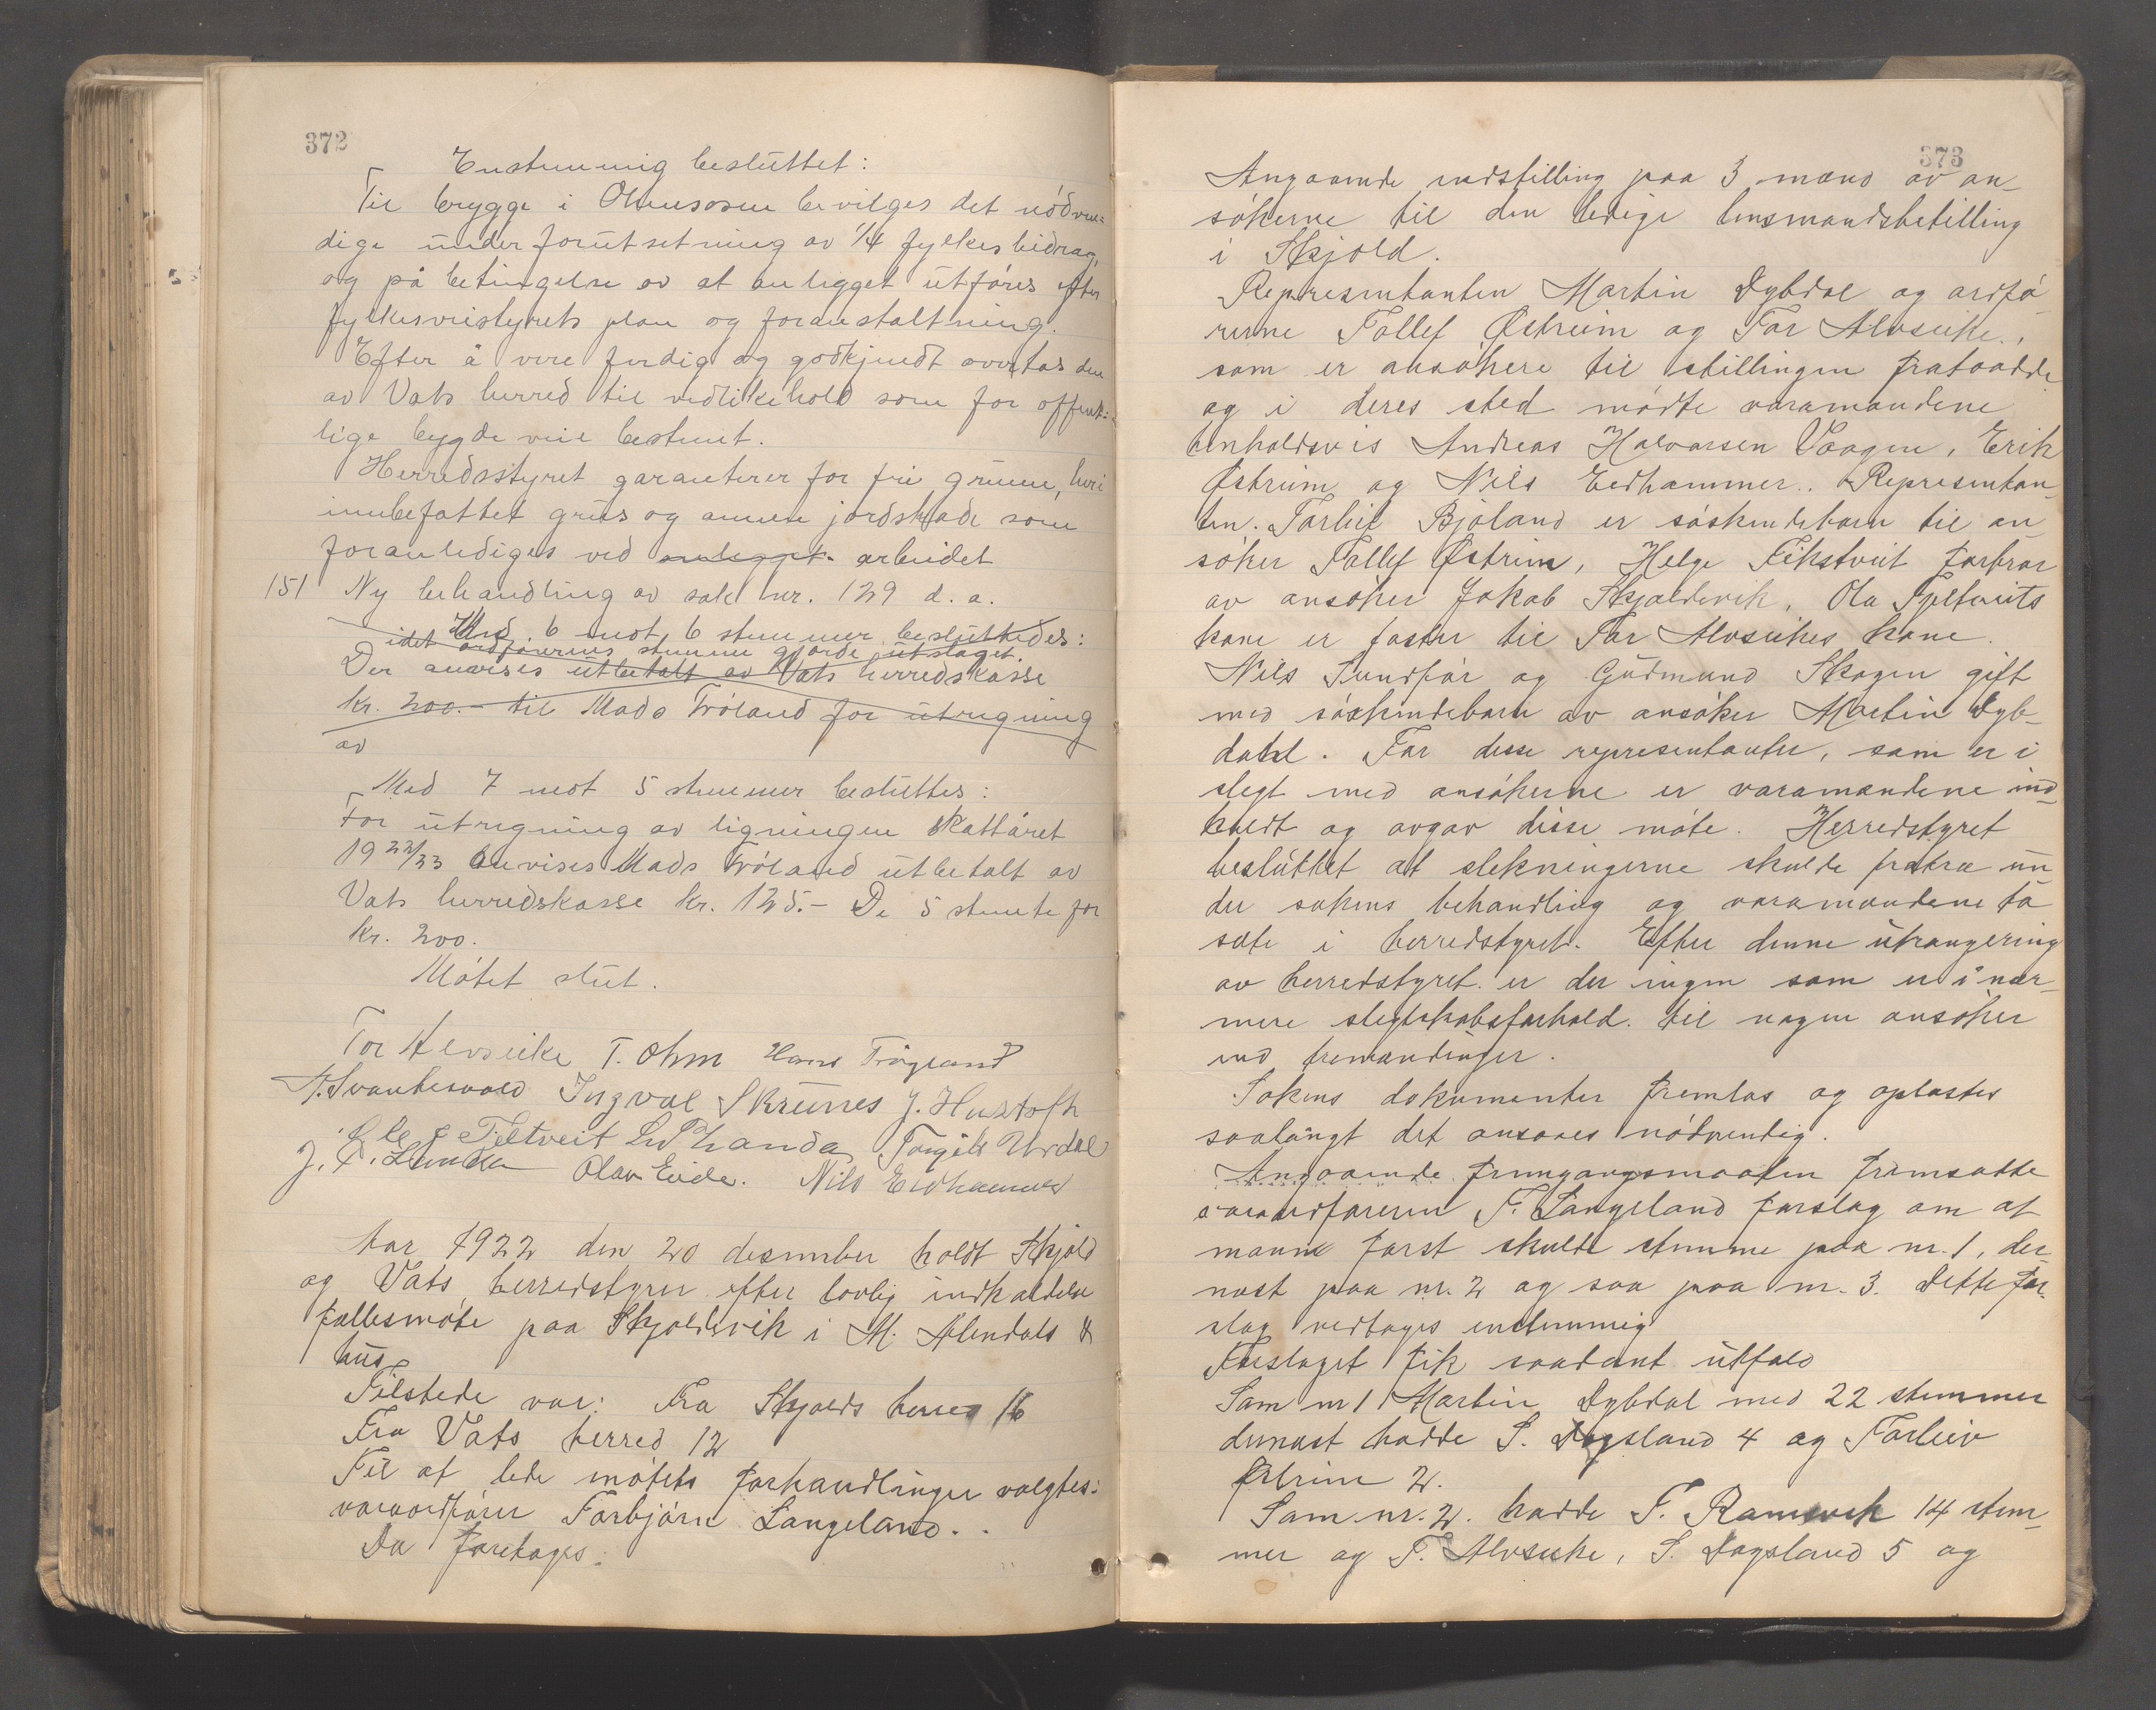 372
Enstemmig besluttet:
Til brygge i Ølensosen bevilges det nödven-
dige under forutsetning av 1/4 fylkesbidrag,
og på betingelse av at anlegget utföres efter
fylkesveistyrets plan og foranstaltning.
Efter å vere ferdig og godkjendt overtas den
av Vats herred til vedlikehold som for offent-
lige bygdeveie bestemt.
Herredsstyret garanterer for fri grunn, heri
innbefattet grus og annen jordskade som
foranlediges ved anlegget. arbeidet
151 Ny behandling av sak nr. 129 d. a.
Med 6 mot 6 stemmer besluttedes:
idet ordförerens stemme gjorde utslaget.
Der anvises utbetalt av Vats herredskasse
kr. 200.- til Mads Tröland for utregning
av
Med 7 mot 5 stemmer besluttes:
For utregning av ligningen skattåret
1922/23 anvises Mads Tröland utbetalt av
Vats herredskasse kr. 125.- De 5 stemte for
kr. 200.
Mötet slut.
Tor Alvseike T. Ohm Hans Tröyland
Ingval Skrunes J.
Tveit Torgils Urdal
Olav Eide. Nils Eidhammer
Aar 1922 den 20 desember holdt Skjold
og Vats herredstyrer efter lovlig indkaldelse
fællesmöte paa Skjoldevik i M. Alendals
hus
Tilstede var: Fra Skjolds herred 16
Fra Vats herred 12
Til at lede mötets forhandlinger valgtes:
varaordförer Torbjörn Langeland.
Da foretages:
373
Angaaende indstilling paa 3 mænd av an-
sökerne til den ledige lensmandsbetilling
i Skjold.
Representanten Martin Dybdal og ordfö-
rerne Tollef Østreim og Tor Alvseike,
som er ansökere til stillingen fratraadde
og i deres sted mödte varamændene
henholdsvis Andreas Halvorsen Vaagen, Erik
Østreim og Nils Eedhammer. Representan-
ten Torleif Bjöland er söskendebarn til an-
söker Tollef Østreim, Helge Fikstveit farbror
av ansöker Jakob Skjoldevik, Ola Tjeltveits
kone er faster til Tor Alvseikes kone.
Nils Sundför og Gudmund Skogen gift
med söskendebarn av ansöker Martin Dyb-
dahl. For disse representanter, som er i
slegt med ansökerne er varamændene ind-
kaldt og avgav disse möte. Herredstyret
besluttet at slekningerne skulde fratræ un-
der sakens behandling og varamændene ta
sæte i herredstyret. Efter denne utrangering
av herredstyret er der ingen som er i nær-
mere slegtskabsforhold til nogen ansöker
end tremændinger.
Sakens dokumenter fremlas og oplæstes
saalangt det ansaaes nödvendig.
Angaaende fremgangsmaaten fremsatte
varaordföreren T. Langeland forslag om at
mann först skulde stemme paa nr. 1, der-
næst paa nr. 2 og saa paa nr. 3. Dette for-
slag vedtages enstemmig
Forslaget fik saadant utfald
Som nr 1 Martin Dybdal med 22 stemmer
dernæst hadde S. Dagsland 4 og Torleiv
Østreim 2.
Som nr. 2. hadde T. Ramsvik 14 stem-
mer og T. Alvseike, S. Dagsland 5 og